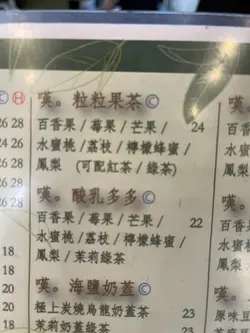 C H 嘆。粒粒果茶 C
26 28 百香果 / 莓果 / 芒果 / 24
24 26 水蜜桃 / 荔枝 / 檸檬蜂蜜 /
26 28 鳳梨 (可配紅茶 / 綠茶)
26 28 嘆。酸乳多多 C
百香果 / 莓果 / 芒果 / 22
水蜜桃 /荔枝 / 檸檬蜂蜜 /
18 鳳梨 / 茉莉綠茶
18 嘆。海鹽奶蓋 C
20 極上炭燒烏龍奶蓋茶 23
18 茉莉奶蓋綠茶 23
嘆。
原味豆